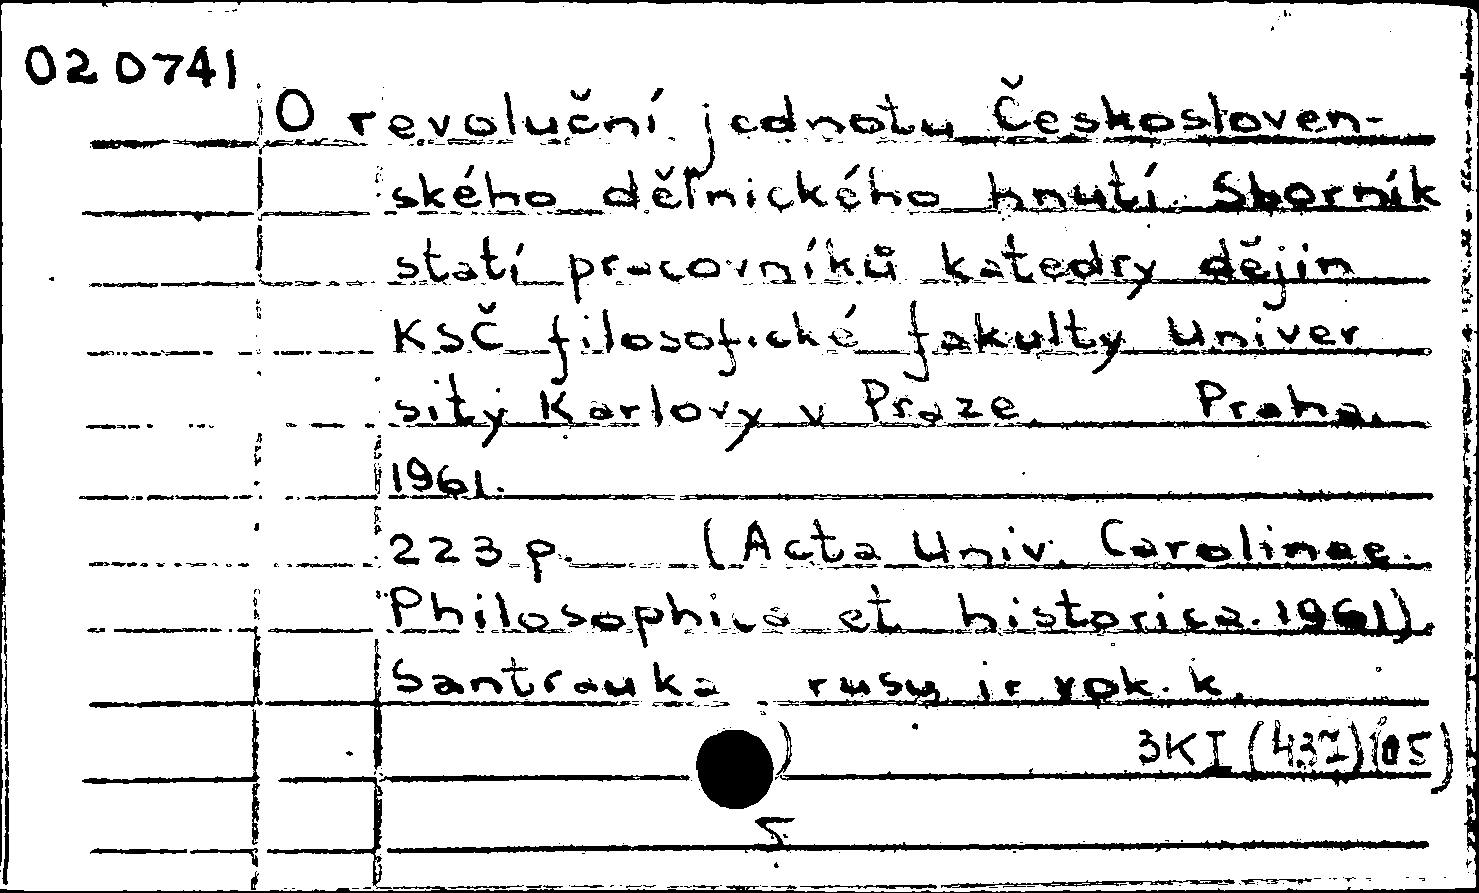 020741
O revoluční jednotu Českosloven-
ského dělnického hnutí. Sborník
statí pracovníků katedry dějin
KSČ filosofické fakulty Univer
sity Karlovy v Praze. Praha,
1961.
223 p. (Acta Univ. Carolinae.
Philosophica et historica. 1961).
Santrauka rusų ir vok. k.
3KI(437)(05)
5